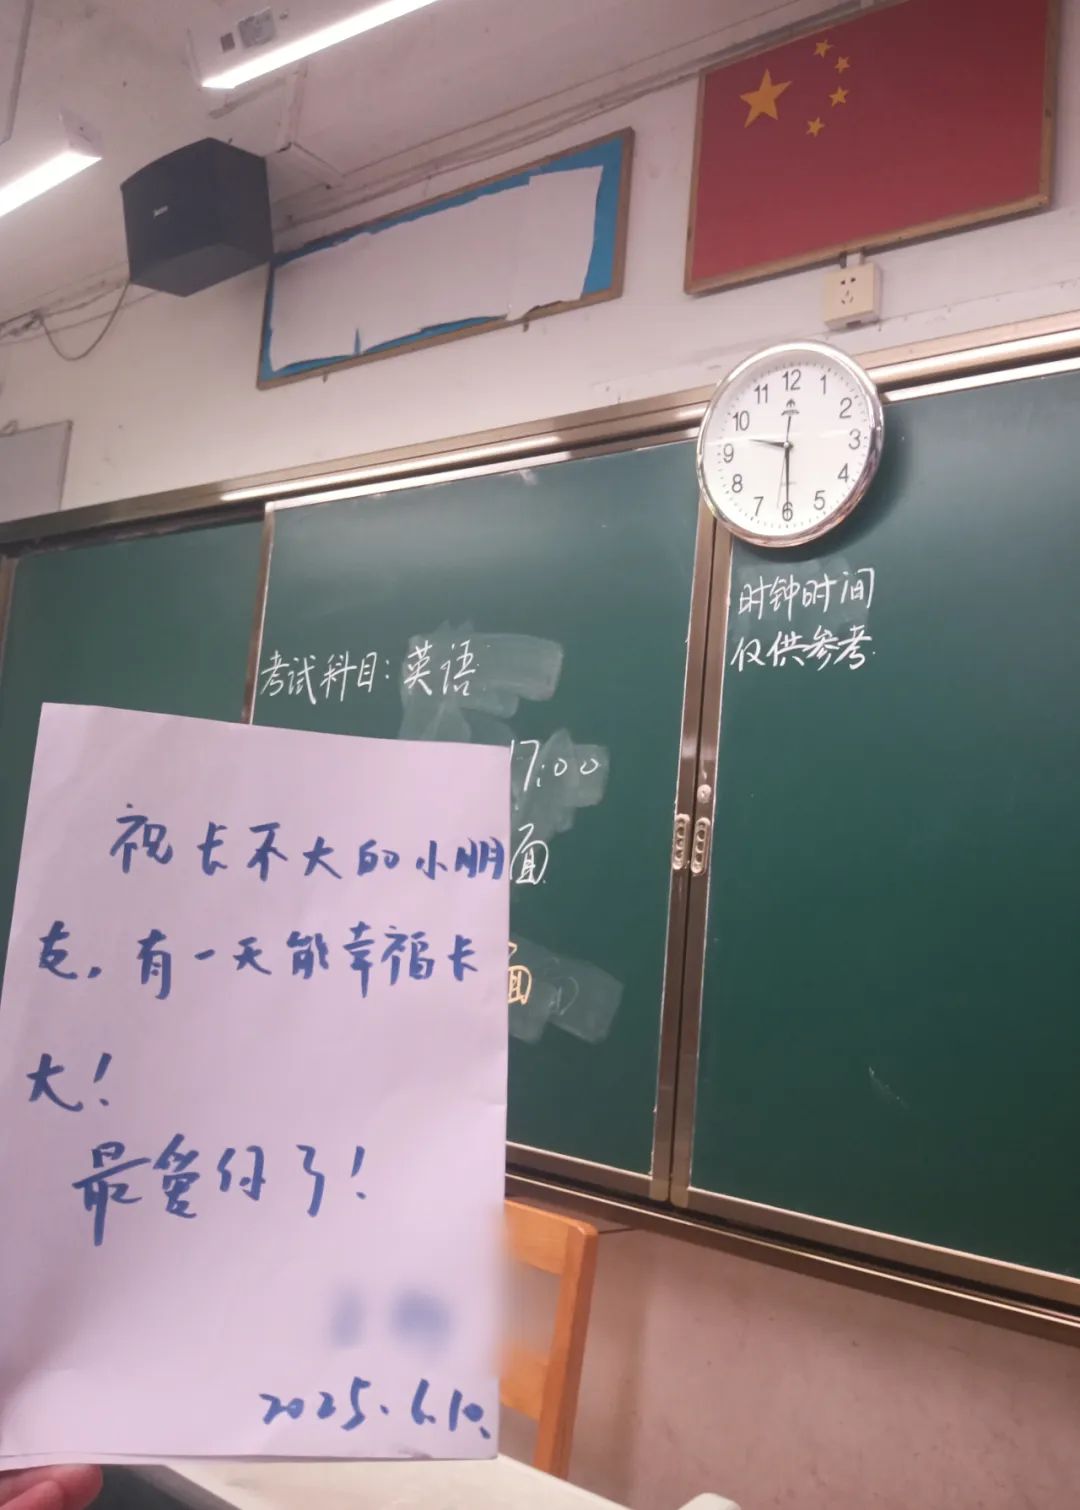 12
1
2
3
4
5
6
7
8
9
10
11
时钟时间
仅供参考
考试科目:英语
17:00
面
面
祝长不大的小朋
友,有一天能幸福长
大!
最爱你了!
2025.6.10.